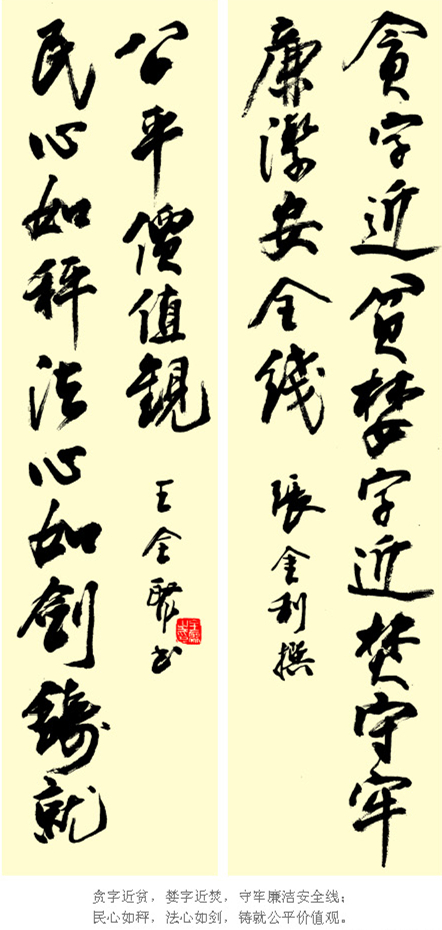 貪字近貧婪字近焚守牢
廉潔安全綫
張金利撰
民心如秤法心如劍鑄就
公平價值觀
王全书
贪字近贫，婪字近焚，守牢廉洁安全线；
民心如秤，法心如剑，铸就公平价值观。